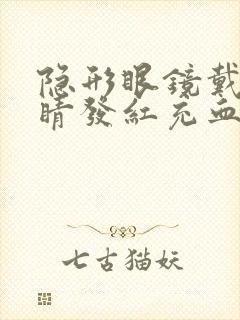 隐形眼镜戴
睛發紅充血
七古猫妖